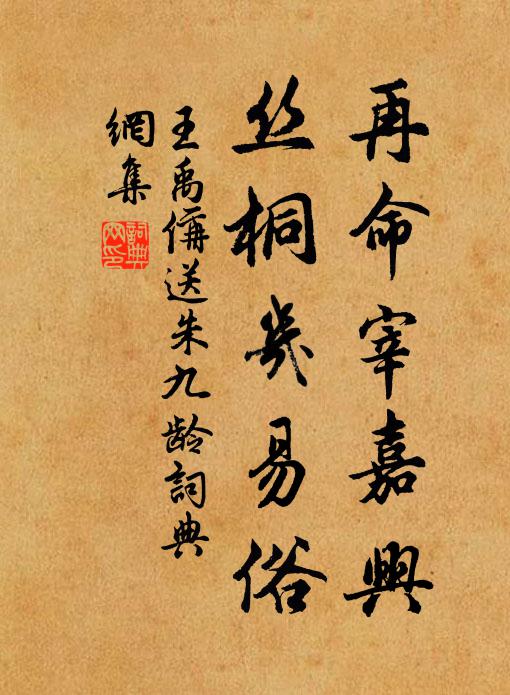 再命宰嘉興
丝桐美易俗
王禹偁送朱九龄詞典
網集
詞典網印